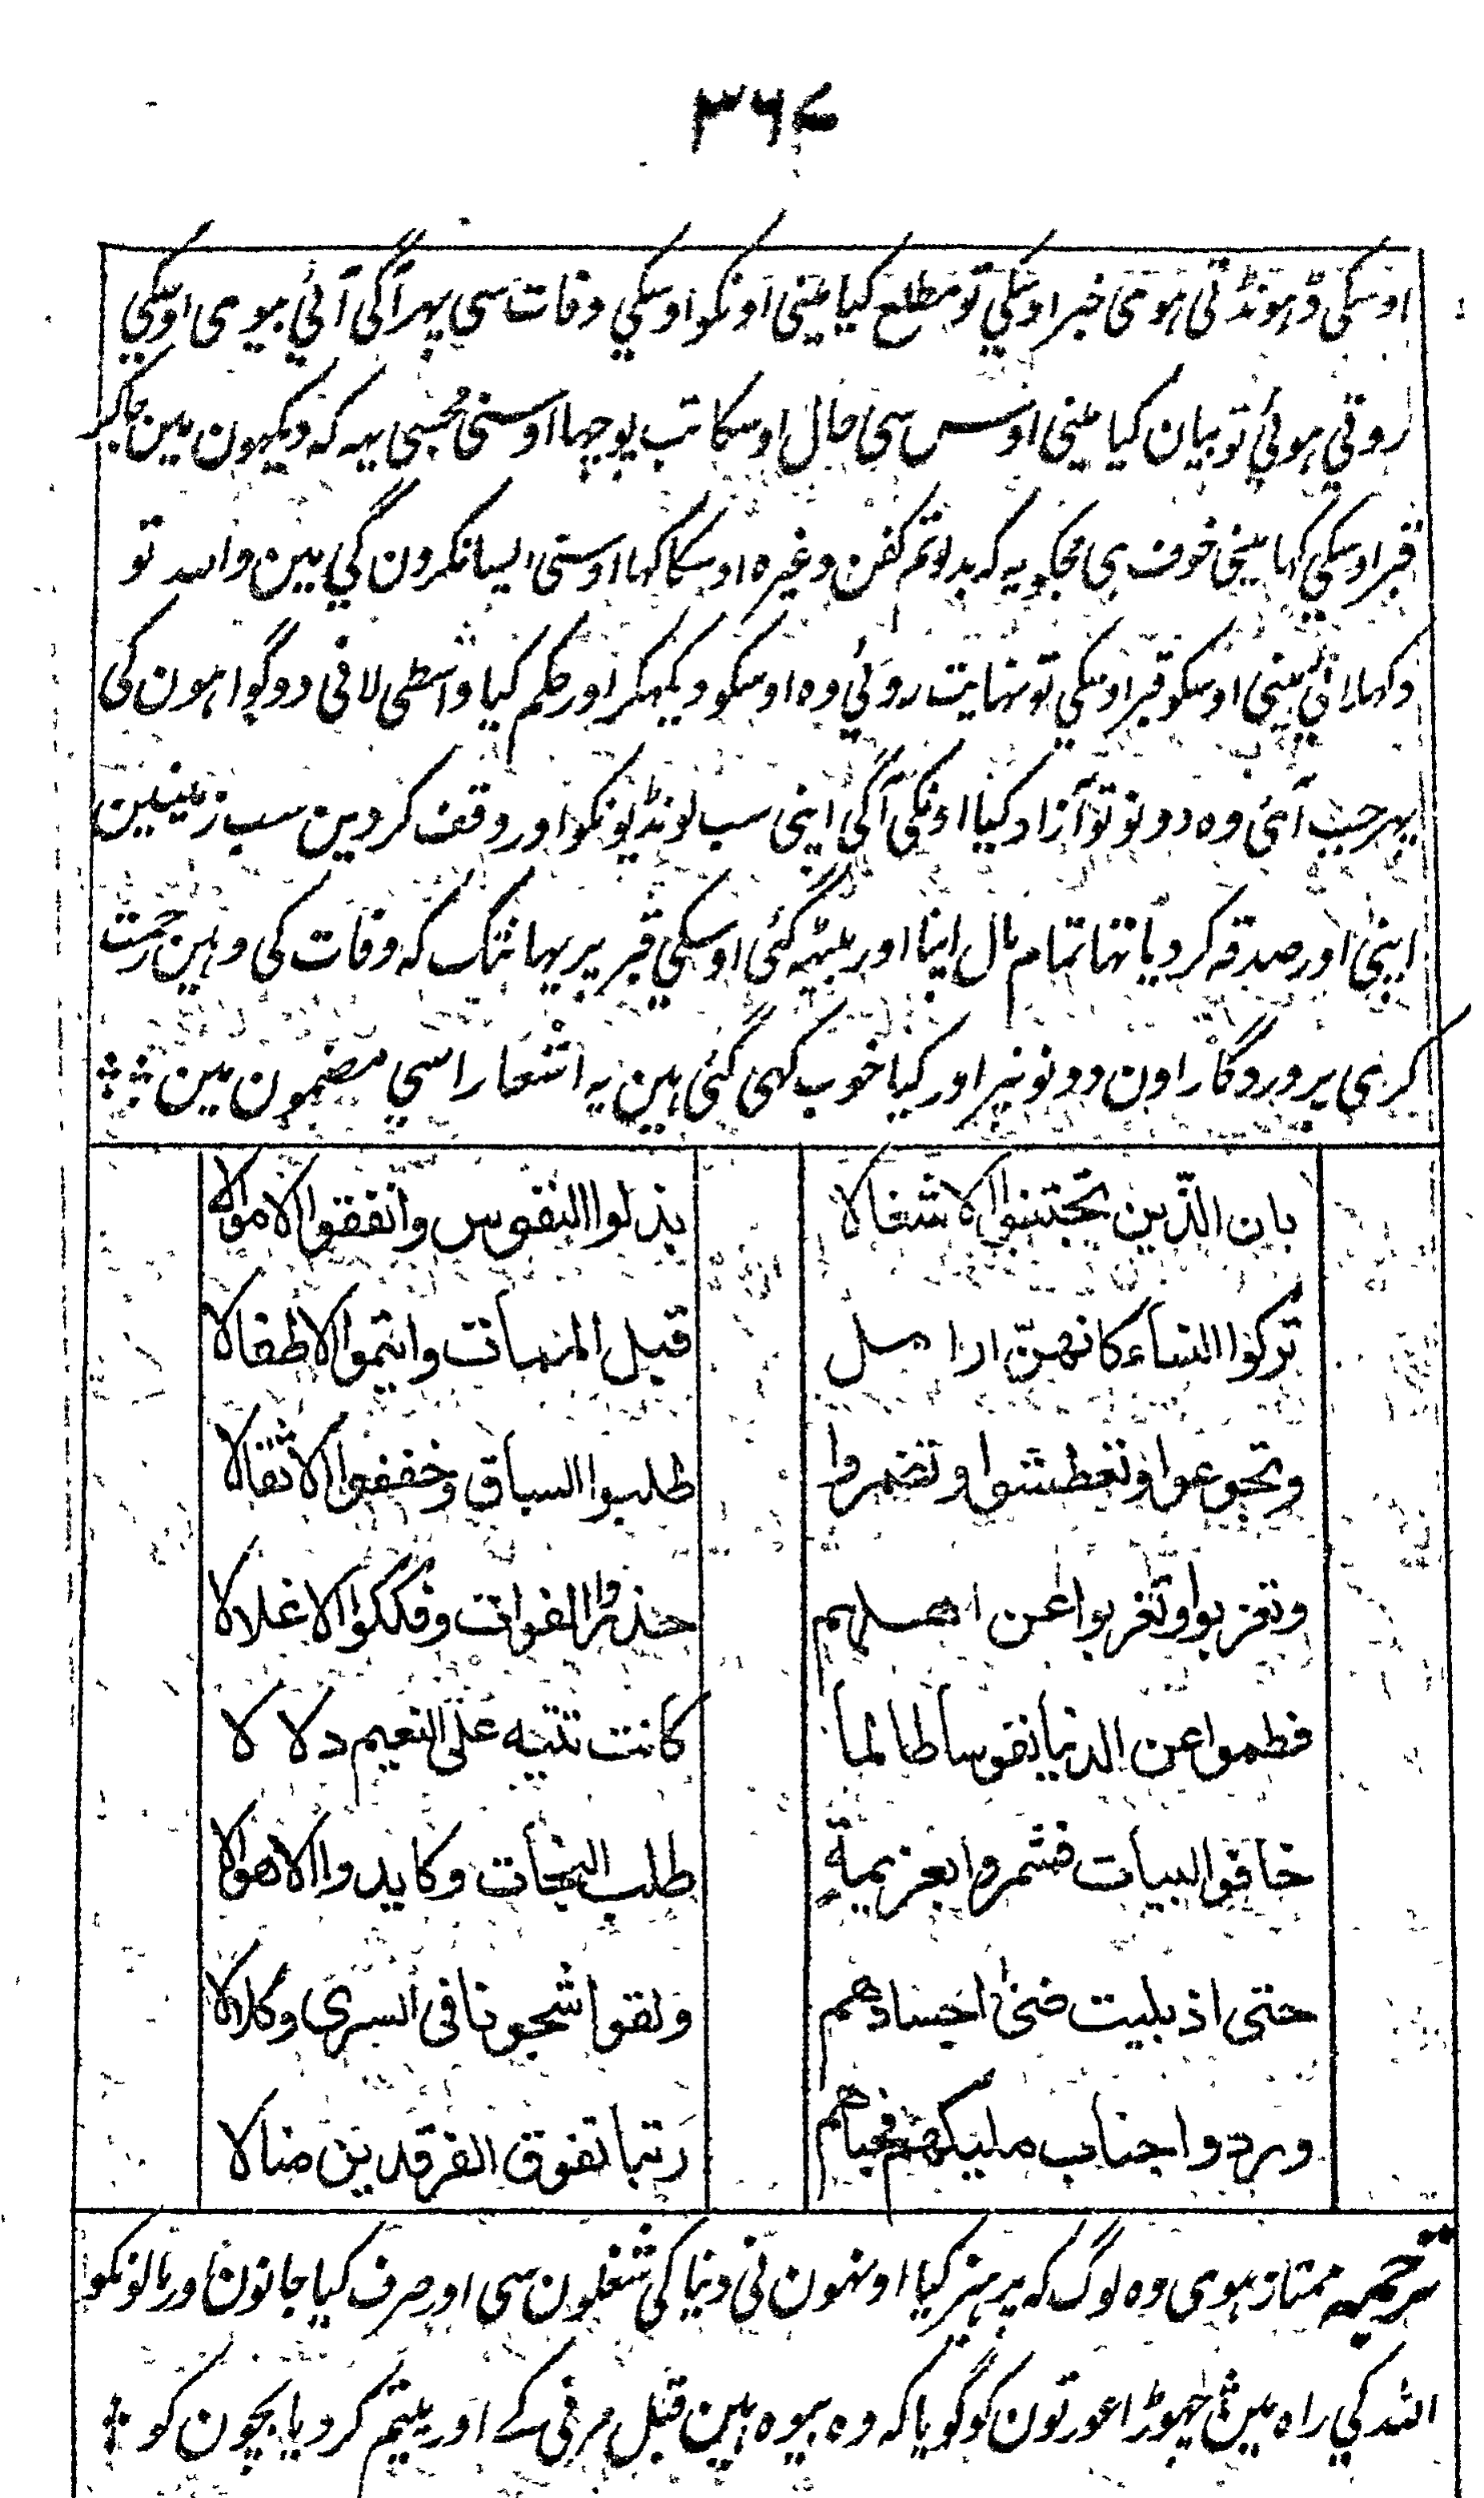 ۳۶۷
اوسکی ڈہونڈتی ہوی خبر اوسکي تو مطلع کیا مینی اونکو اوسکي وفات سی پہر آگی آئي بیوی اوسکي
روتي ہوئي تو بیان کیا مینی اوس سی حال اوسکا تب پوچہا اوسنی مجسی یہہ کہ دیکہون مین جاکر
قبر اوسکي کہا مینی خوف ہی مجکو یہ کہ بدلو تم کفن وغیرہ اوسکا کہا اوسنی ایسا نکرون گي مین واللہ تو
دکہلائي مینی اوسکو قبر اوسکي تو نہایت روئي وہ اوسکو دیکہکر اور حکم کیا واسطی لانی دو گواہون کی
پہر جب آئی وہ دونو تو آزاد کیا اونکی آگی اپنی سب لونڈیونکو اور وقف کر دین سب زمینین
اپنی اور صدقہ کر دیا تہا تمام مال اپنا اور بیٹہہ گئی اوسکي قبر پر یہانتک کہ وفات کی وہین رحمت
کری پروردگار اون دونونپر اور کیا خوب کہی گئی ہین یہ اشعار اسي مضمون مین
بان الّذین تجتنبوا الاشغالا
بذلوا النفوس وانفقوا الاموالا
ترکوا النساء کانهنّ ارامل
قبل الممات وایتموا الاطفالا
وتجوعوا وتعطشوا وتضمروا
طلبوا السباق وخففوا الاثقالا
وتعزبوا وتغربوا عن اهلهم
حذروا الفوات وفککوا الاغلالا
فطموا عن الدنیا نفوسا طالما
کانت تتیه علی النعیم دلالا
خافوا البیات فشمروا بعزیمة
طلب النجات وکابدوا الاهوالا
حتی اذ بلیت ضنیٰ اجسادهم
ولقوا شجونا فی السری وکلالا
وردوا جناب ملیکهم فحباهم
رتبا تفوق الفرقدین منالا
ترجمہ ممتاز ہوی وہ لوگ کہ پرہیز کیا اونہون نی دنیا کی شغلون سی اور صرف کیا جانون اور مالونکو
اللہ کي راہ مین چہوڑا عورتون کو گویا کہ وہ بیوہ ہین قبل مرنی کے اور یتیم کر دیا بچون کو